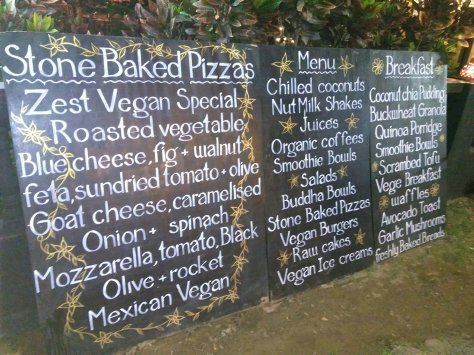 Stone Baked Pizzas
Zest Vegan Special
Roasted vegetable
Blue cheese, fig + walnut
feta, sundried tomato + olive
Goat cheese, caramelised
Onion + spinach
Mozzarella, tomato, Black
Olive + rocket
Mexican Vegan
Menu
Chilled coconuts
Nut Milk Shakes
Juices
Organic coffees
Smoothie Bowls
Salads
Buddha Bowls
Stone Baked Pizzas
Vegan Burgers
Raw cakes
Vegan Ice creams
Breakfast
Coconut chia Pudding
Buckwheat Granola
Quinoa Porridge
Smoothie Bowls
Scrambed Tofu
Vege Breakfast
waffles
Avocado Toast
Garlic Mushrooms
Freshly Baked Breads